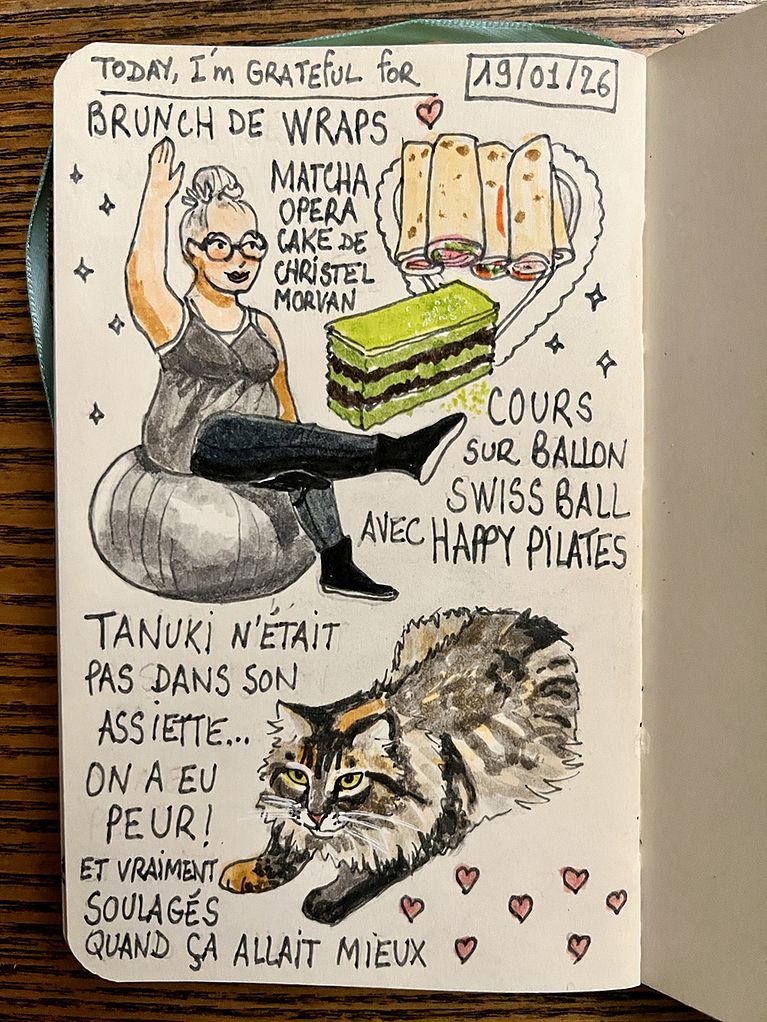 TODAY, I'm GRATEFUL for
19/01/26
BRUNCH DE WRAPS
MATCHA
OPERA
CAKE DE
CHRISTEL
MORVAN
COURS
SUR BALLON
SWISS BALL
AVEC HAPPY PILATES
TANUKI N'ÉTAIT
PAS DANS SON
ASSIETTE...
ON A EU
PEUR!
ET VRAIMENT
SOULAGÉS
QUAND ÇA ALLAIT MIEUX